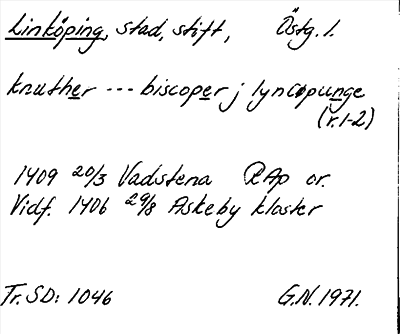 Linköping, stad, stift, Östg. l.
knuther --- biscoper j lyncøpunge
(r. 1-2)
1409 20/3 Vadstena RAp or.
Vidf. 1406 29/8 Askeby kloster
Tr. SD: 1046 G.N. 1971.